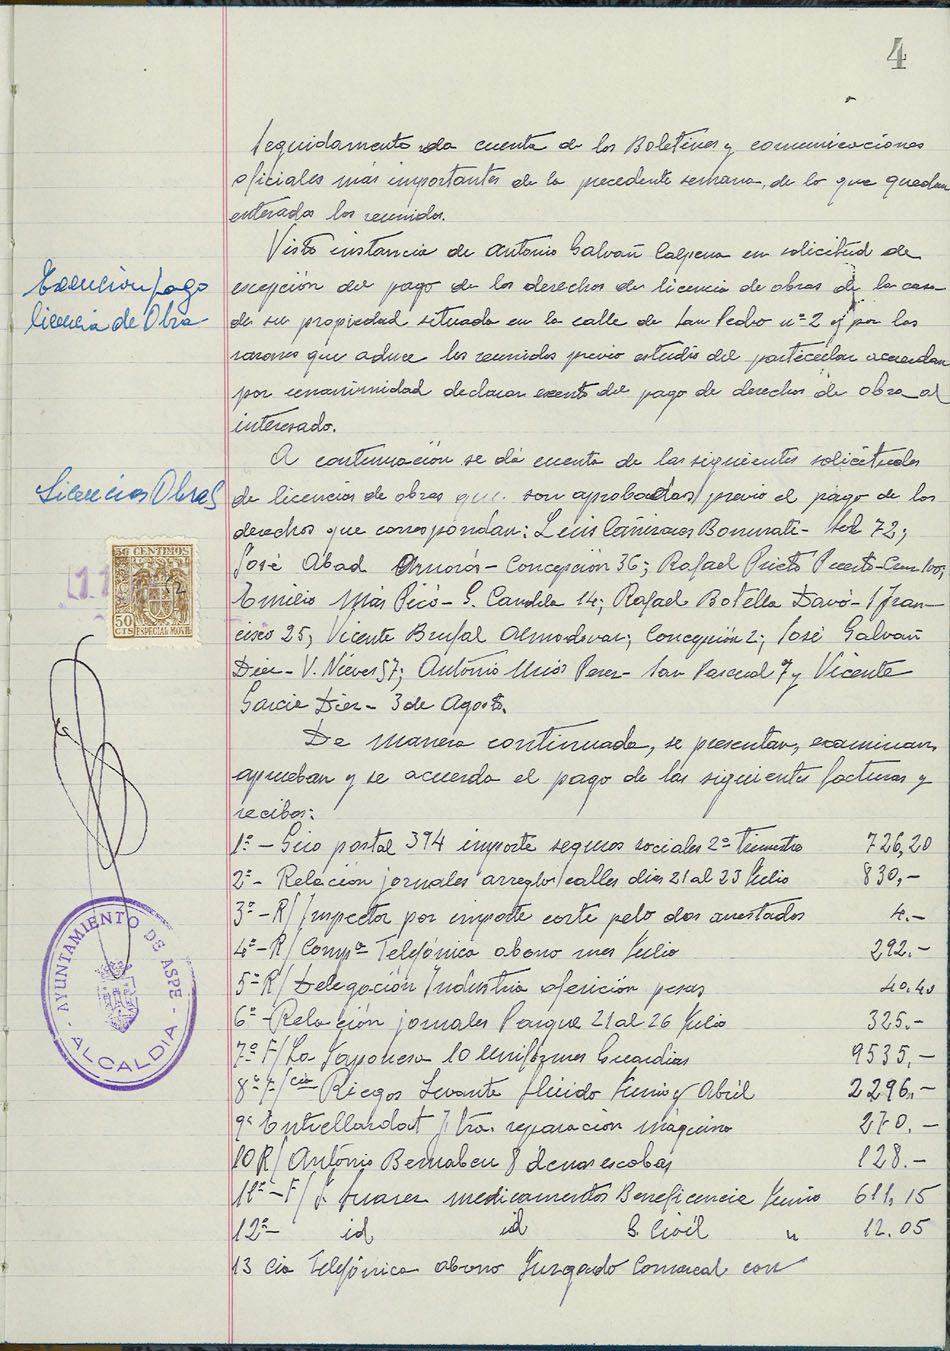 4
Seguidamente da cuenta de los Boletines y comunicaciones
oficiales más importantes de la precedente semana, de lo que quedan
enterados los reunidos.
Exención pago
licencia de Obra
Visto instancia de Antonio Galvañ Calpena en solicitud de
escepción del pago de los derechos de licencia de obras de la casa
de su propiedad situada en la calle de San Pedro nº 2 y por las
razones que aduce los reunidos previo estudio del particular acuerdan
por unanimidad declarar exento del pago de derechos de obra al
interesado.
Licencias Obras
A continuación se dá cuenta de las siguientes solicitudes
de licencias de obras que son aprobadas previo el pago de los
derechos que correspondan: Luis Cañizares Bonmati - Sol 72;
José Abad Amorós - Concepción 36; Rafael Prieto Puerto -
Emilio Más Picó - G. Candela 14; Rafael Botella Davó - S Fran-
cisco 25; Vicente Brufal Almodovar; Concepción 2; José Galvañ
Diez - V. Nieves 57; António Mira Perez - San Pascual 7 y Vicente
Garcia Diez - 3 de Agosto.
De manera continuada, se presentan, examinan,
aprueban y se acuerda el pago de las siguientes facturas y
recibos:
1º - Giro postal 394 importe seguros sociales 2º Trimestre 726,20
2º - Relación jornales arreglo calles dias 21 al 23 Julio 830,-
3º - R/ Inspector por importe corte pelo dos arrestados 4.-
4º - R/ Compª Telefónica abono mes Julio 292.-
5º R/ Delegación Industria afericion pesas 40.40
6º - Relación jornales Parque 21 al 26 Julio 325.-
7º F/ La Japonesa 10 Uniformes Guardias 9535,-
8º F/ Cia Riegos Levante flúido Junio y Abril 2296,-
9º reparación máquina 270.-
10 R/ António Bernabeu 8 escobas 128.-
11º - F/ J. Suarez medicamentos Beneficencia Junio 611,15
12º - id id G. Civil " 12.05
13 Cia Telefónica abono Juzgado Comarcal con
50 CENTIMOS
50
CTS ESPECIAL MOVIL
AYUNTAMIENTO DE ASPE
- ALCALDIA -